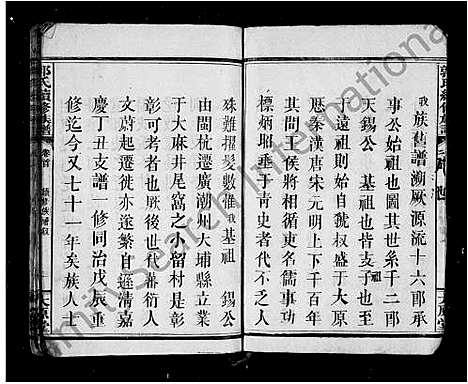 我族舊譜溯厥源流十六郎承
事公始祖也圖其世系千二郎
天錫公 基祖也皆支子也
於遠祖則始自虢叔盛于大原
歷秦漢唐宋元明上下千百年
間王侯將相何可殫名儒事功
標炳昭垂于青史者代不乏人
殊難擢髮數惟我基祖 錫公
由閩杭遷廣潮州大埔縣立業
于大麻井尾窩之小留村是彰
彰可考者也厥後世代蕃衍人
文蔚起遷徙亦遂繁自遜清嘉
慶丁丑支譜一修同治戊辰重
修迄今又七十一年矣族人士
郭氏續修族譜
卷首
大原堂
My Search International